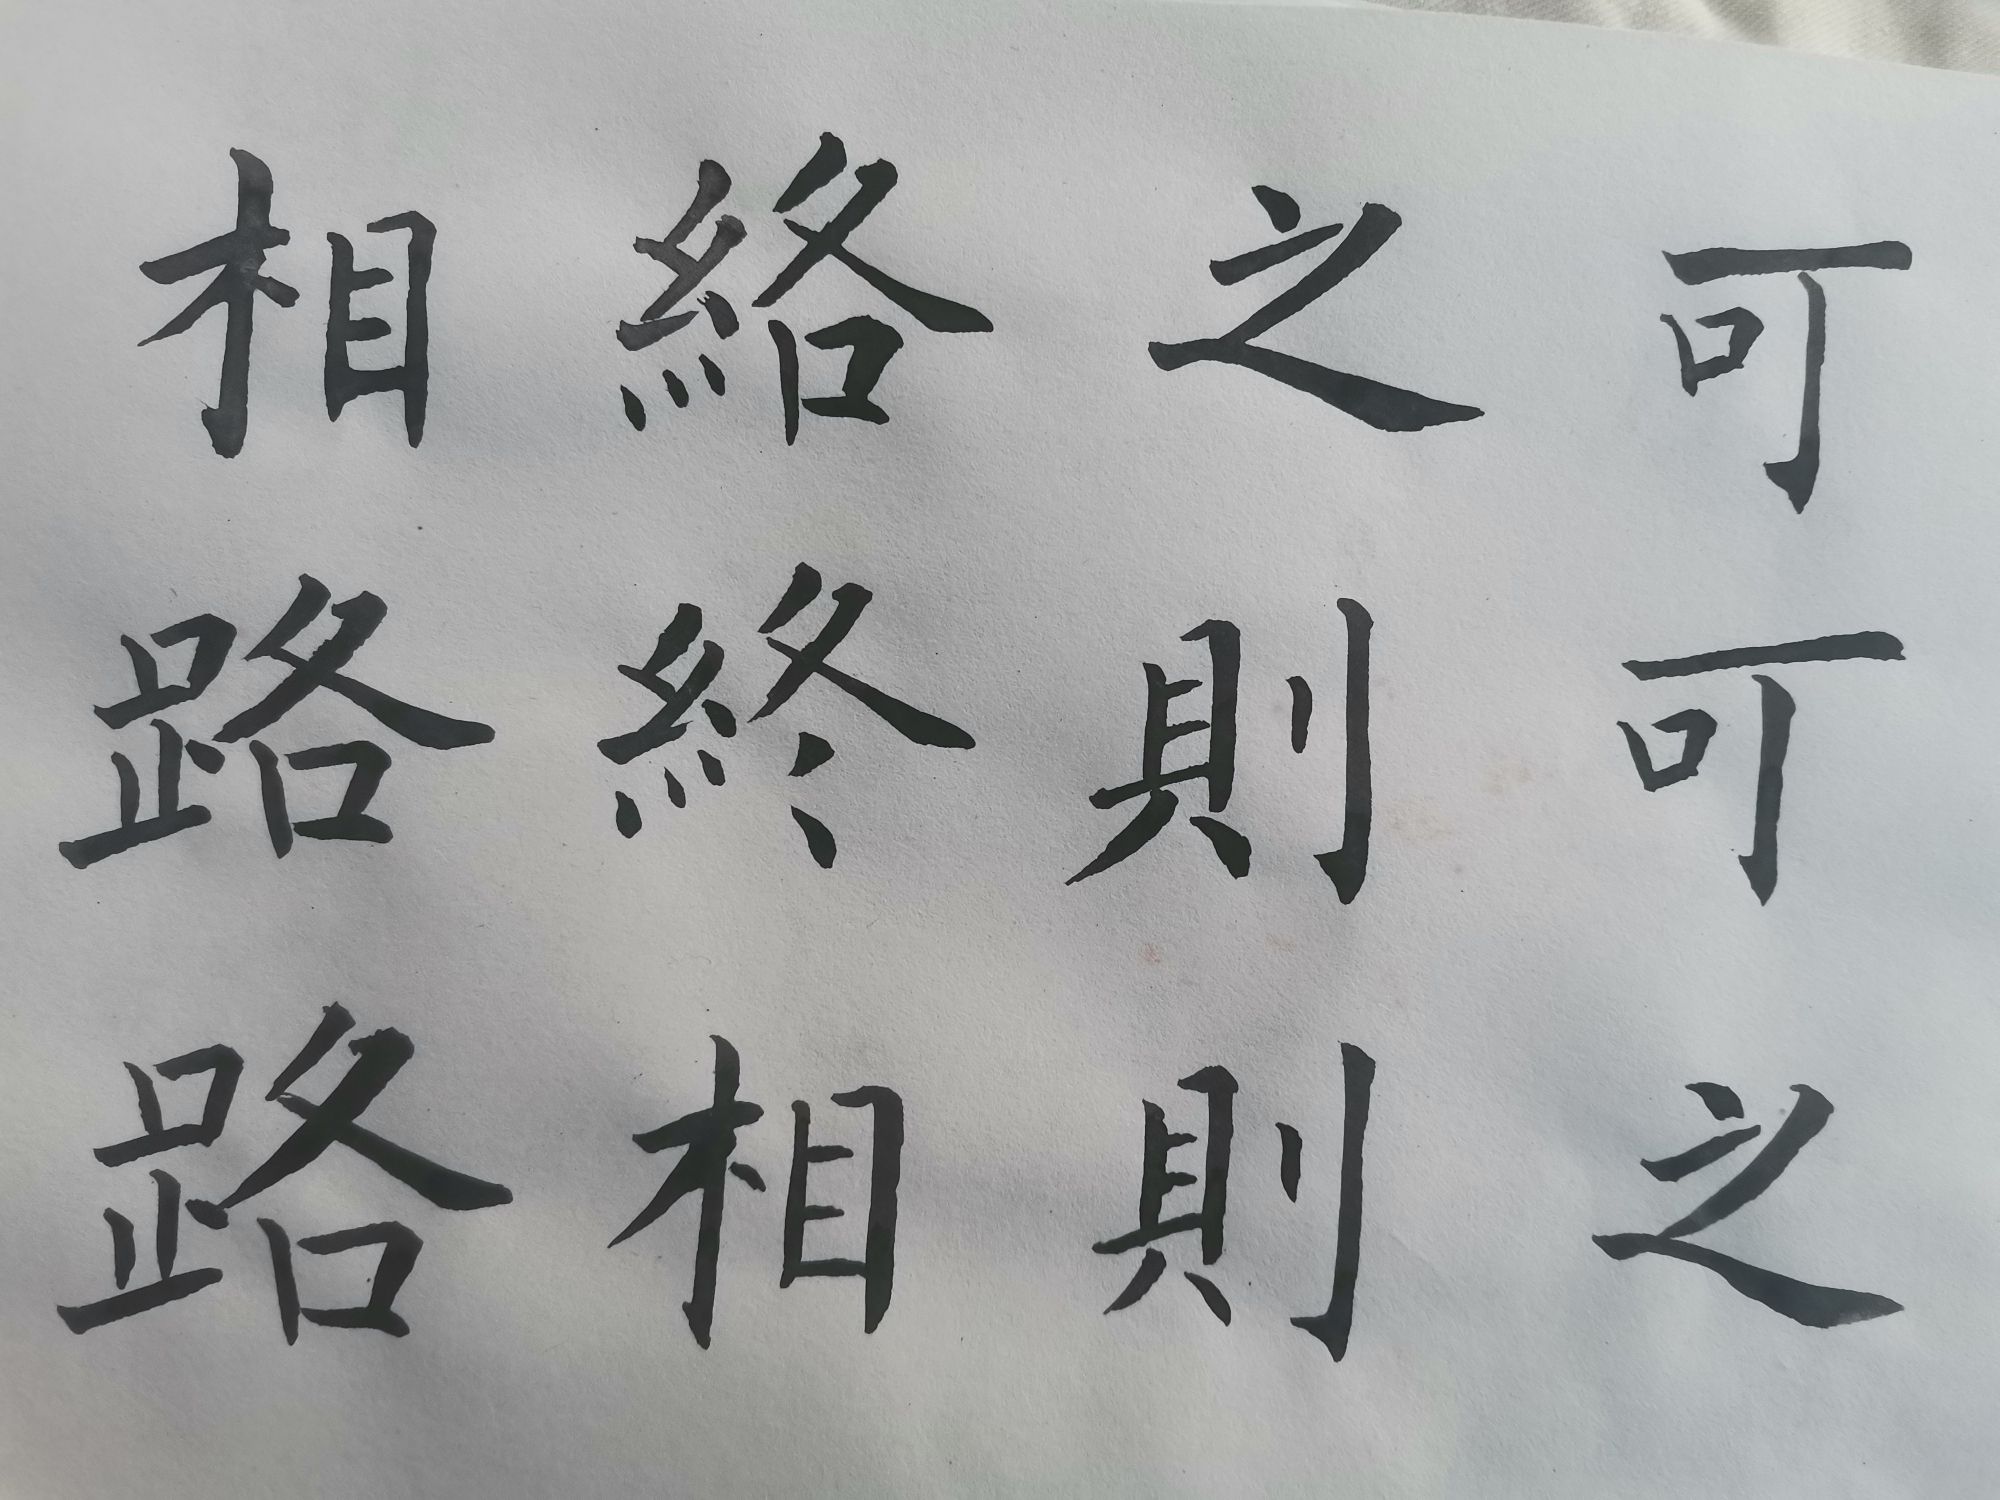 相絡之可
路終則可
路相則之